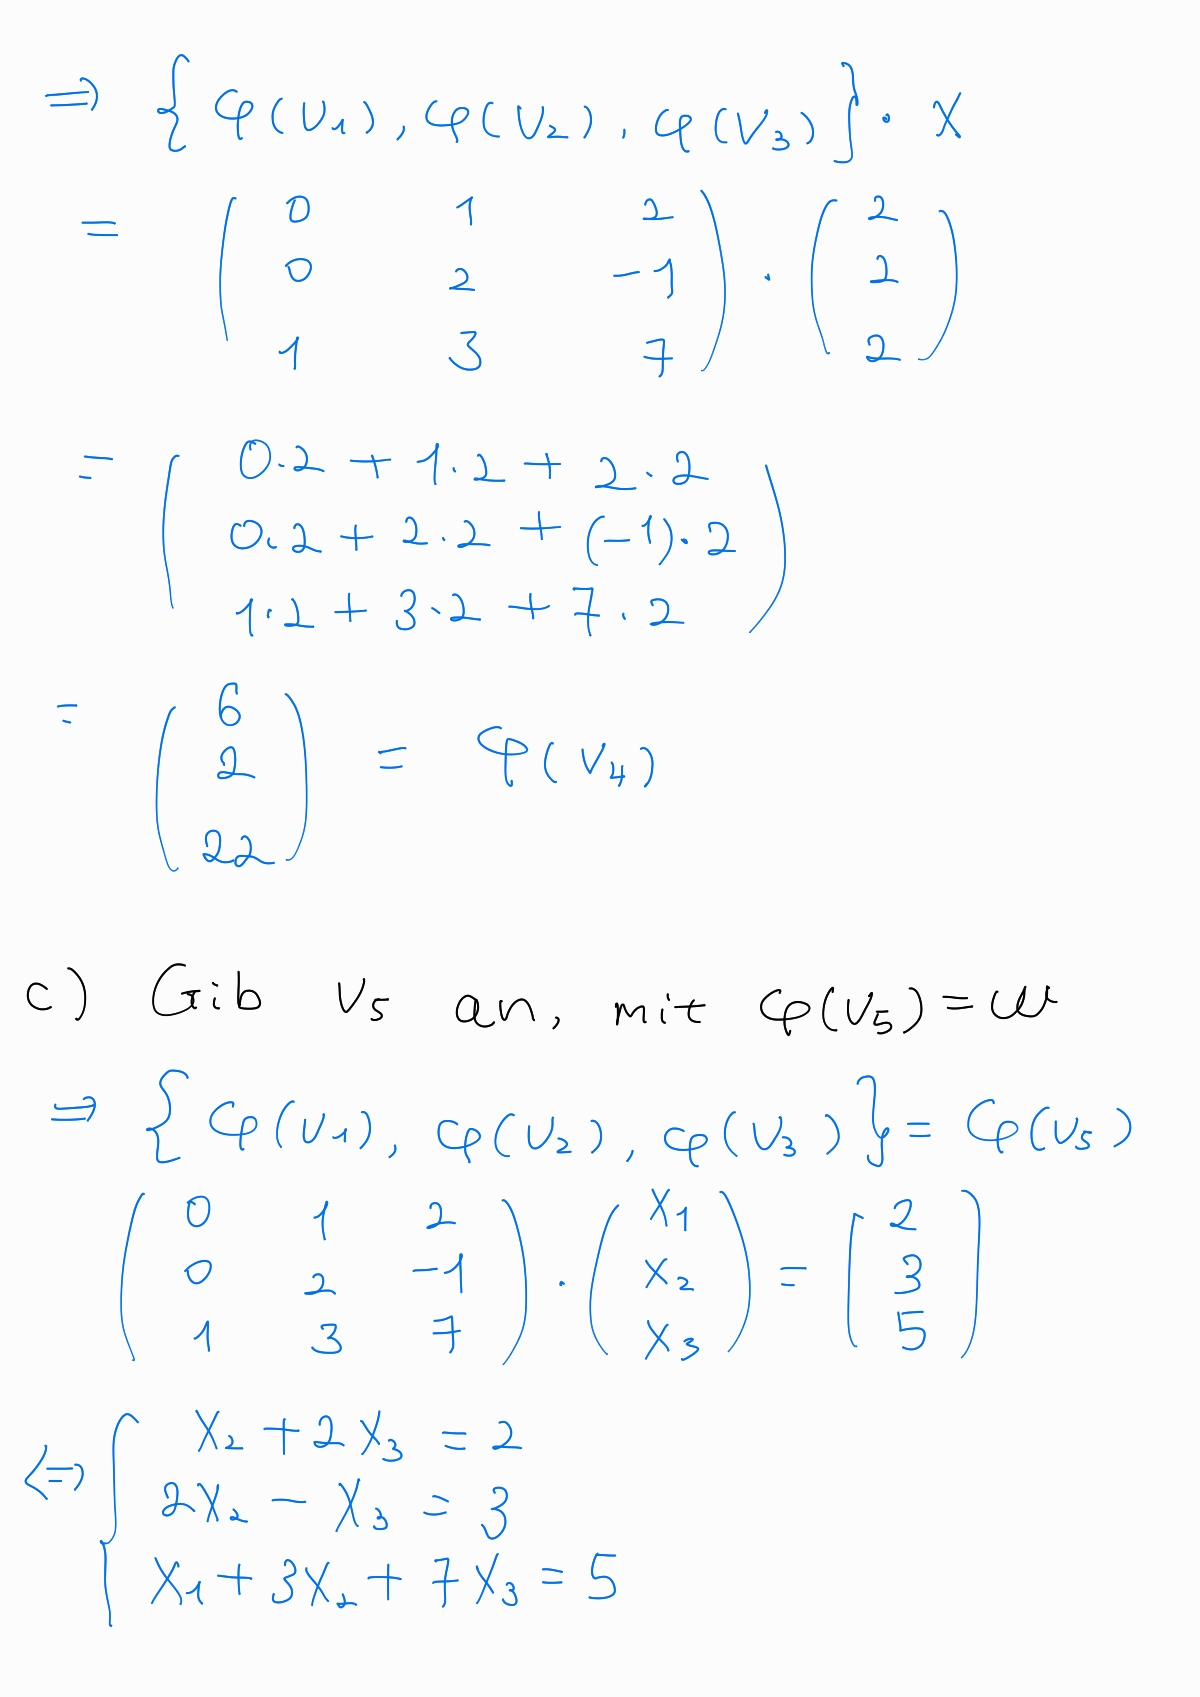 ⇒ { φ(V₁), φ(V₂), φ(V₃) } · X
= ( 0 1 2 ) · ( 2 )
( 0 2 -1 ) ( 2 )
( 1 3 7 ) ( 2 )
= ( 0·2 + 1·2 + 2·2 )
( 0·2 + 2·2 + (-1)·2 )
( 1·2 + 3·2 + 7·2 )
= ( 6 )
( 2 ) = φ(V₄)
( 22 )
c) Gib V₅ an, mit φ(V₅) = w
⇒ { φ(V₁), φ(V₂), φ(V₃) } = φ(V₅)
( 0 1 2 ) · ( X₁ ) = ( 2 )
( 0 2 -1 ) ( X₂ ) ( 3 )
( 1 3 7 ) ( X₃ ) ( 5 )
⇔ { X₂ + 2X₃ = 2
2X₂ - X₃ = 3
X₁ + 3X₂ + 7X₃ = 5